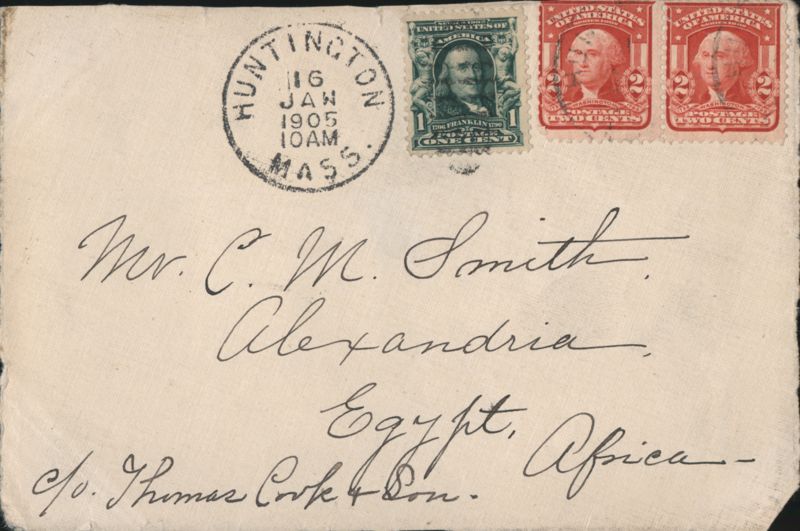 HUNTINGTON
16
JAN
1905
10AM
MASS.
UNITED STATES
OF AMERICA
1 1
1706 FRANKLIN 1790
POSTAGE
ONE CENT
UNITED STATES
OF AMERICA
2 2
WASHINGTON
POSTAGE
TWO CENTS
UNITED STATES
OF AMERICA
2 2
WASHINGTON
POSTAGE
TWO CENTS
Mr. C. M. Smith.
Alexandria.
Egypt,
Africa-
c/o. Thomas Cook & Son.